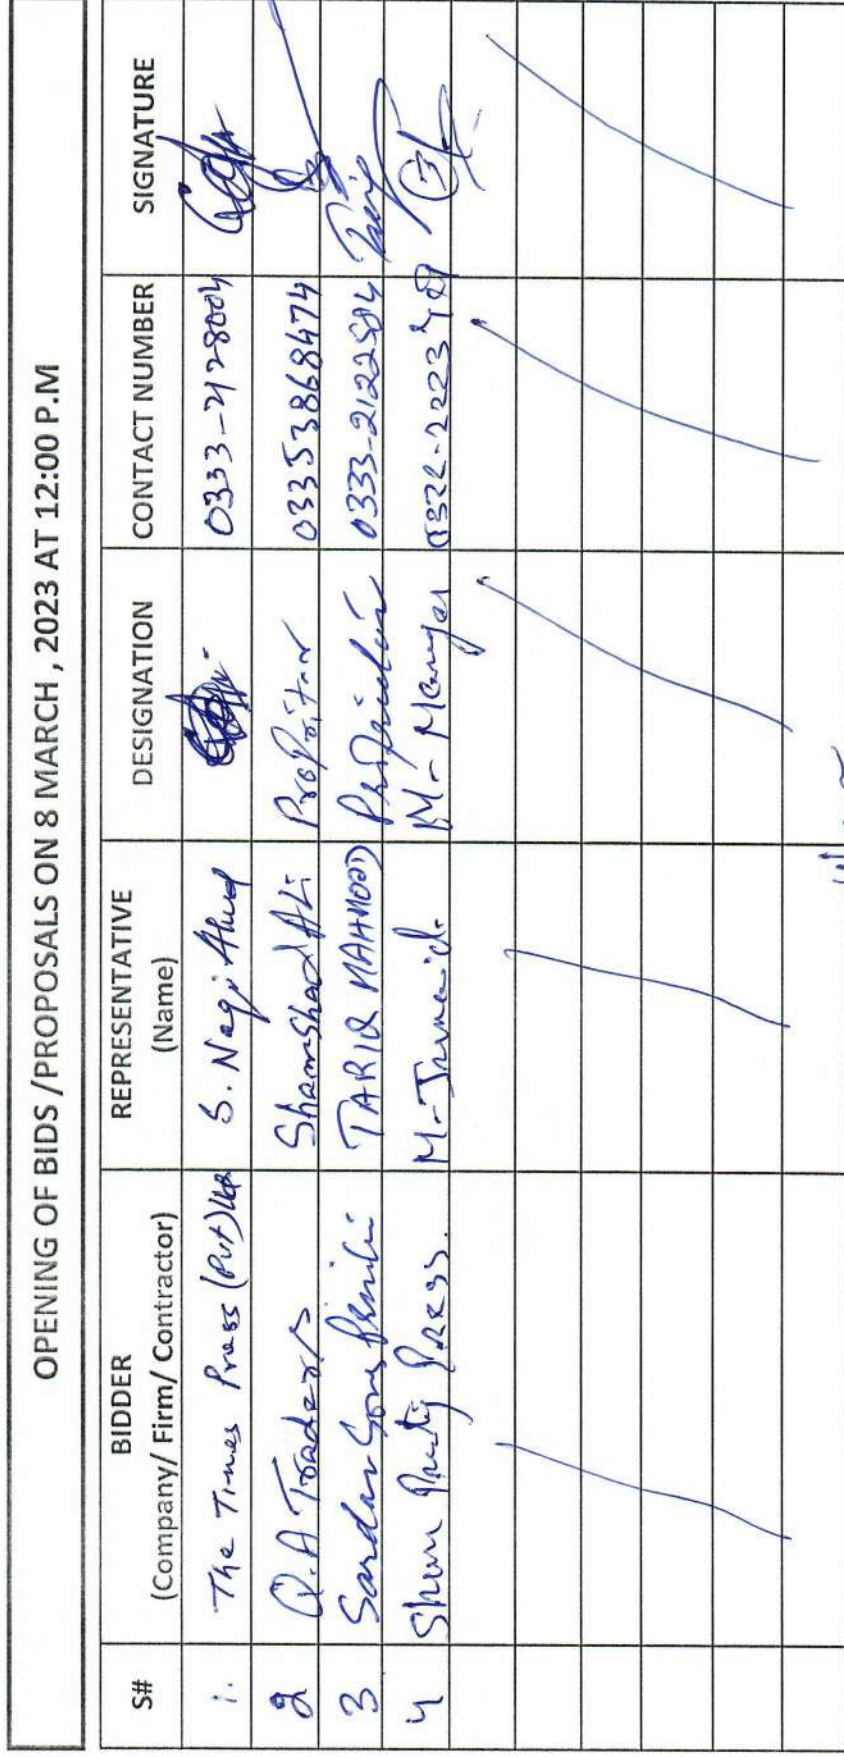 OPENING OF BIDS /PROPOSALS ON 8 MARCH , 2023 AT 12:00 P.M
S# BIDDER (Company/ Firm/ Contractor) REPRESENTATIVE (Name) DESIGNATION CONTACT NUMBER SIGNATURE
1. The Times Press (Pvt) Ltd S. Naqi Ahmed 0333-2128004
2 Q.A Traders Shamshad ALi Propritor 03353868474
3 Sardar Sons TARIQ MAHMOOD 0333-2122584
4 Press. M-Junaid. M- Manager 0322-2223